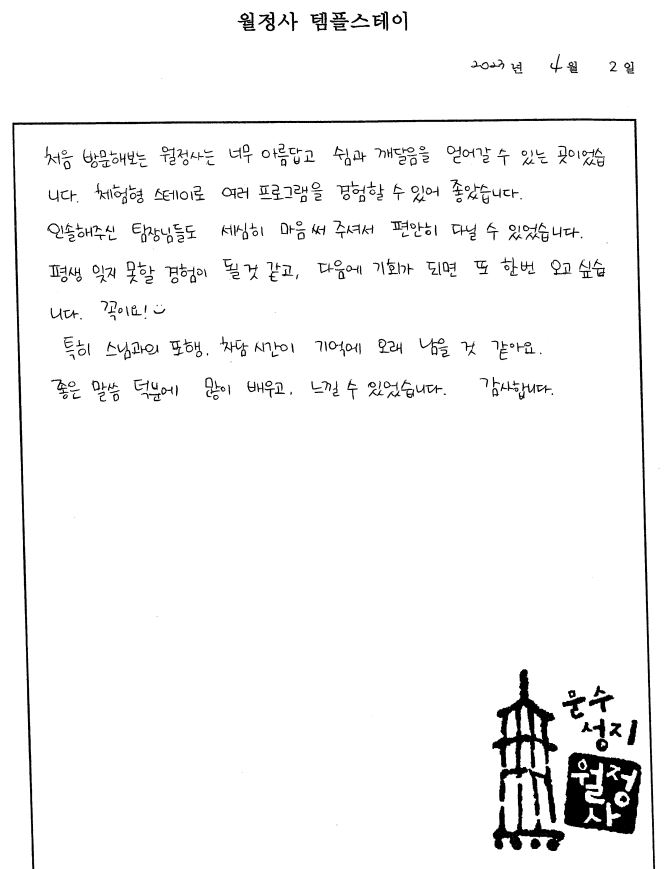 월정사 템플스테이
2023년 4월 2일
처음 방문해보는 월정사는 너무 아름답고 쉼과 깨달음을 얻어갈 수 있는 곳이었습
니다. 체험형 스테이로 여러 프로그램을 경험할 수 있어 좋았습니다.
인솔해주신 팀장님들도 세심히 마음 써 주셔서 편안히 다닐 수 있었습니다.
평생 잊지 못할 경험이 될 것 같고, 다음에 기회가 되면 또 한번 오고 싶습
니다. 꼭이요!
특히 스님과의 포행, 차담 시간이 기억에 오래 남을 것 같아요.
좋은 말씀 덕분에 많이 배우고, 느낄 수 있었습니다. 감사합니다.
문수
성지
월정
사